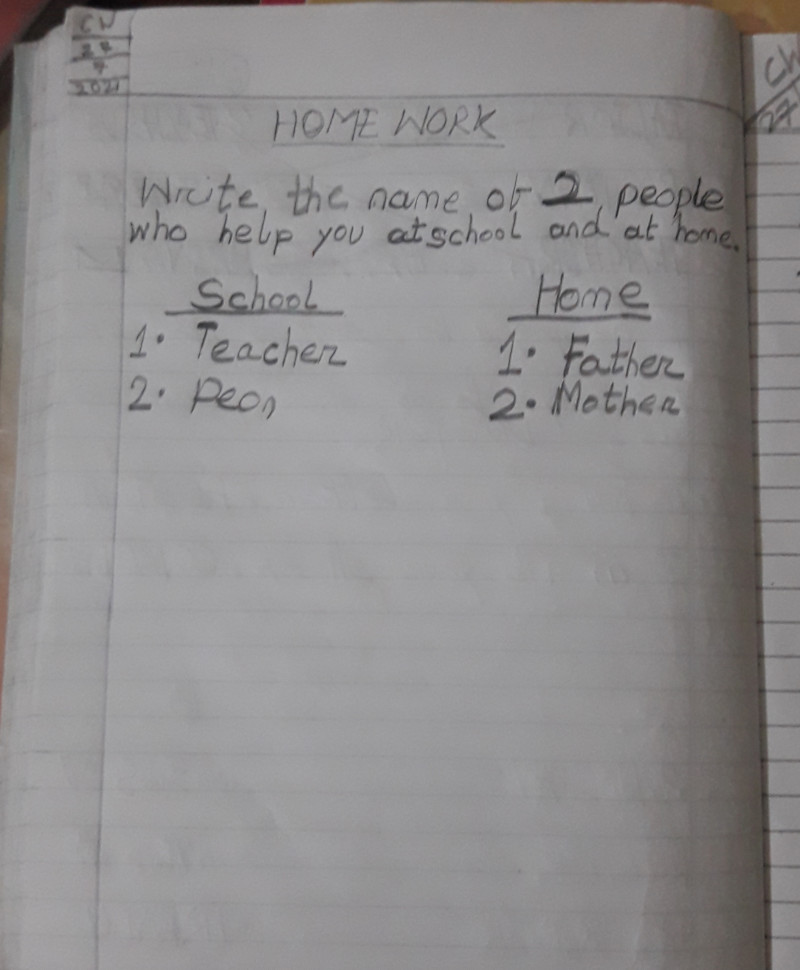 CW
27
7
2021
HOME WORK
Write the name of 2 people
who help you at school and at home.
School Home
1. Teacher 1. Father
2. Peon 2. Mother
CW
27